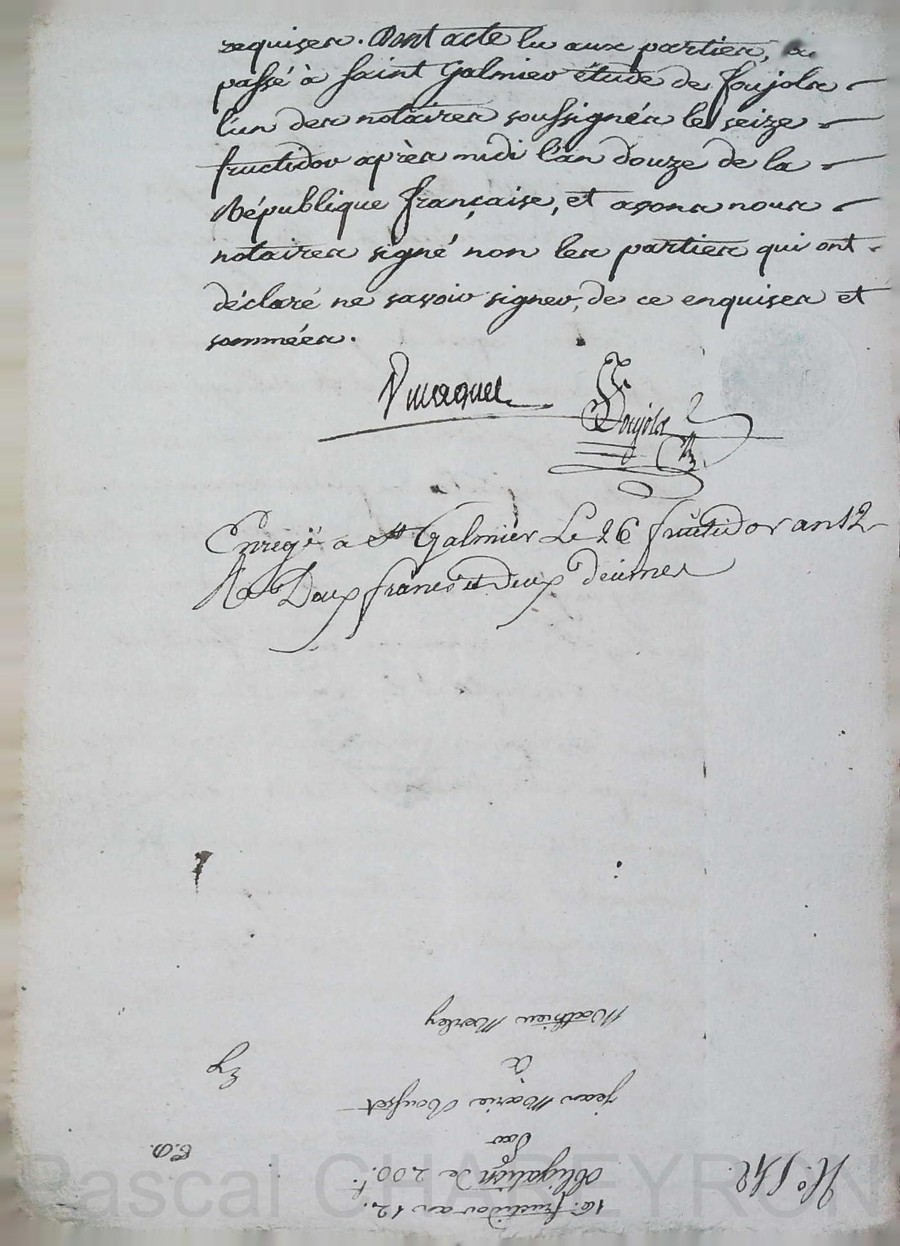 requises. Dont acte lu aux parties, &
passé à Saint Galmier étude de Foujols
l'un des notaires soussignés le seize
fructidor après midi l'an douze de la
République française, et avons nous
notaires signé non les parties qui ont
déclaré ne savoir signer, de ce enquises et
sommées.
Foujols
Enregé a St Galmier Le 26 fructidor an 12
Deux francs et deux decimes
N.o 542.
16. fructidor an 12.
Obligation de 200 f.
Par
Jean Marie Mathieu Merley
Pascal CHAREYRON